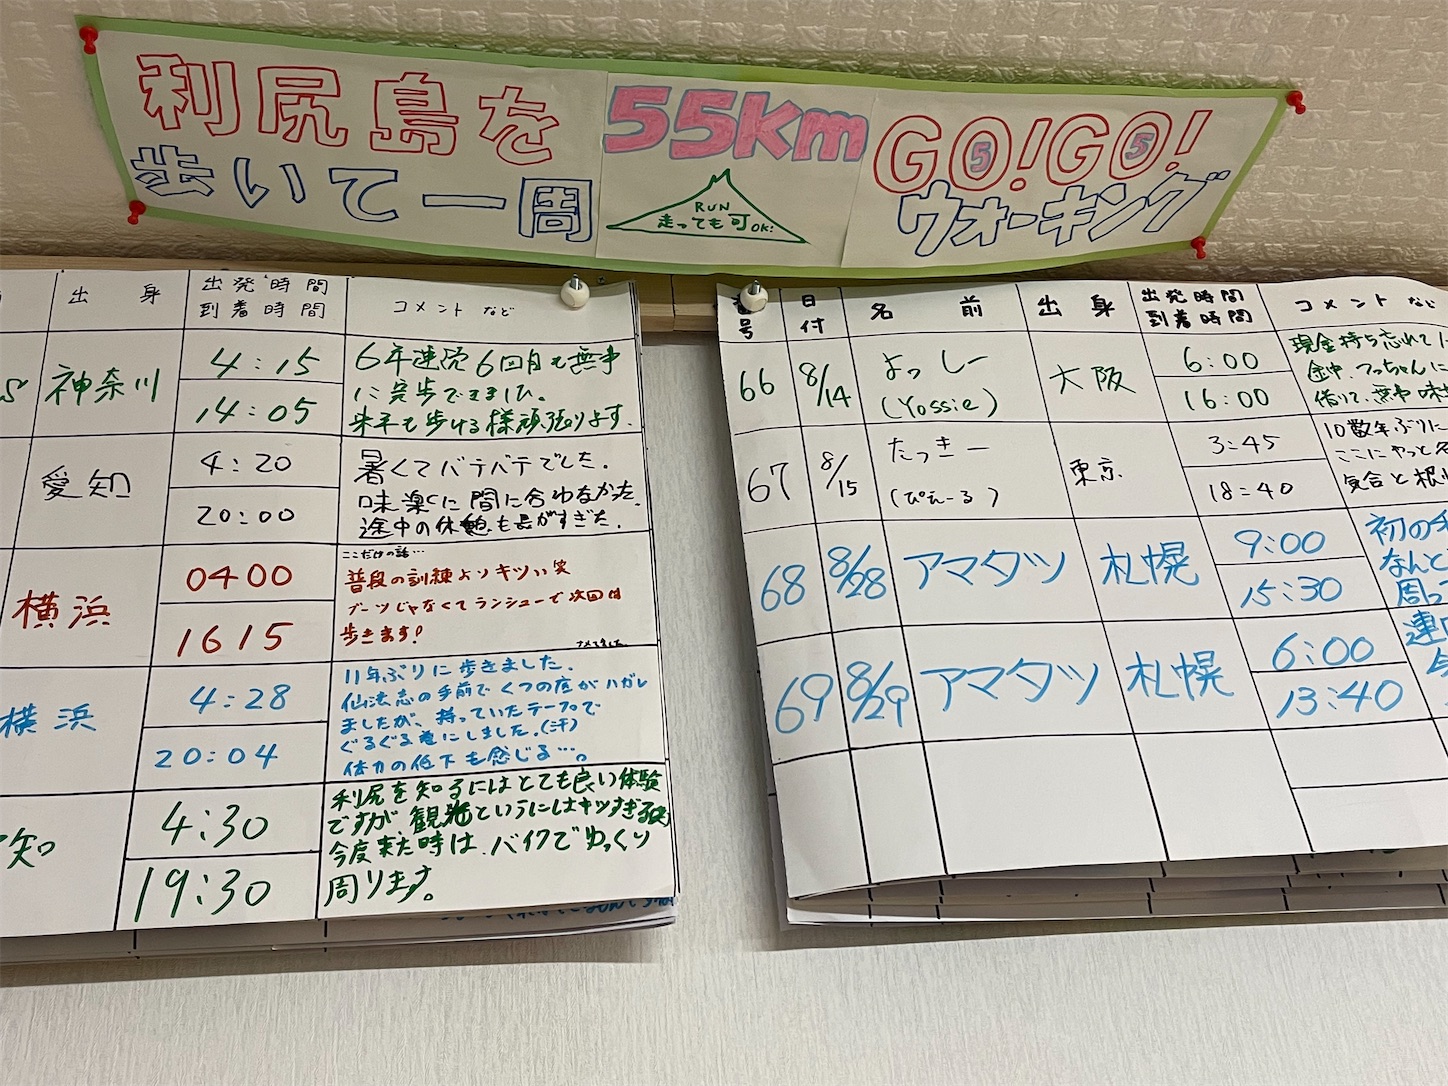 利尻島を
歩いて一周
55Km
RUN
走っても可 OK!
GO!GO!
5 5
ウォーキング
出 身
出発時間
到着時間
コメント など
神奈川
4:15
14:05
6年連続6回目も無事
に完歩できました。
来年も歩ける様頑張ります。
愛知
4:20
20:00
暑くてバテバテでした.
味楽に間に合わなかった.
途中の休憩も長がすぎた.
横浜
0400
1615
ここだけの話…
普段の訓練よりキツい笑
ブーツじゃなくてランシューで次回は
歩きます!
横浜
4:28
20:04
11年ぶりに歩きました.
仙法志の手前でくつの底がハガレ
ましたが、持っていたテープで
ぐるぐる巻にしました.(汗)
体力の低下も感じる…。
知
4:30
19:30
利尻を知るにはとても良い体験
ですが観光というにはキツすぎる
今度来た時は、バイクでゆっくり
周ります。
番号
日付
名 前
出 身
出発時間
到着時間
コメント など
66
8/14
よっしー
(Yossie)
大阪
6:00
16:00
現金持ち忘れて
途中、てっちゃんに
借りて、無事
67
8/15
たっきー
(ぴぇーる)
東京
3:45
18:40
10数年ぶりに
ここにやっと
気合と根
68
8/28
アマタツ
札幌
9:00
15:30
初の
なんと
周っ
69
8/29
アマタツ
札幌
6:00
13:40
連